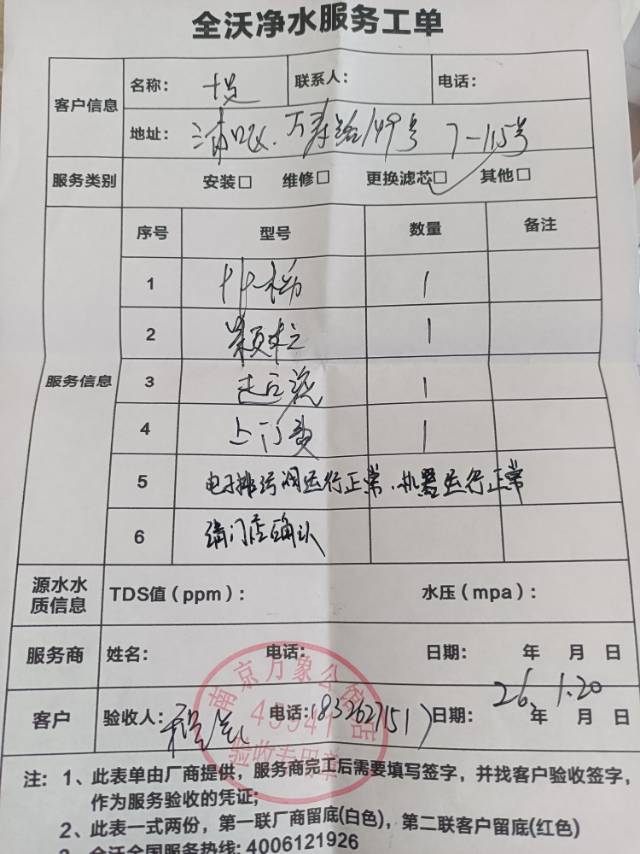 全沃净水服务工单
客户信息
名称:
联系人:
电话:
地址: 浦口区.万寿路149号 7-115号
服务类别
安装□ 维修□ 更换滤芯□ 其他□
服务信息
序号 型号 数量 备注
1 1
2 颗粒 1
3 1
4 上门费 1
5 电子排污阀运行正常.机器运行正常
6 请门店确认
源水水质信息
TDS值（ppm）: 水压（mpa）:
服务商 姓名: 电话: 日期: 年 月 日
客户 验收人: 电话:18326271517 日期: 26年 1月 20日
南京万象公馆店
49941
验收专用章
注: 1、此表单由厂商提供，服务商完工后需要填写签字，并找客户验收签字，
作为服务验收的凭证;
2、此表一式两份，第一联厂商留底(白色)，第二联客户留底(红色)
3 全沃全国服务热线: 4006121926